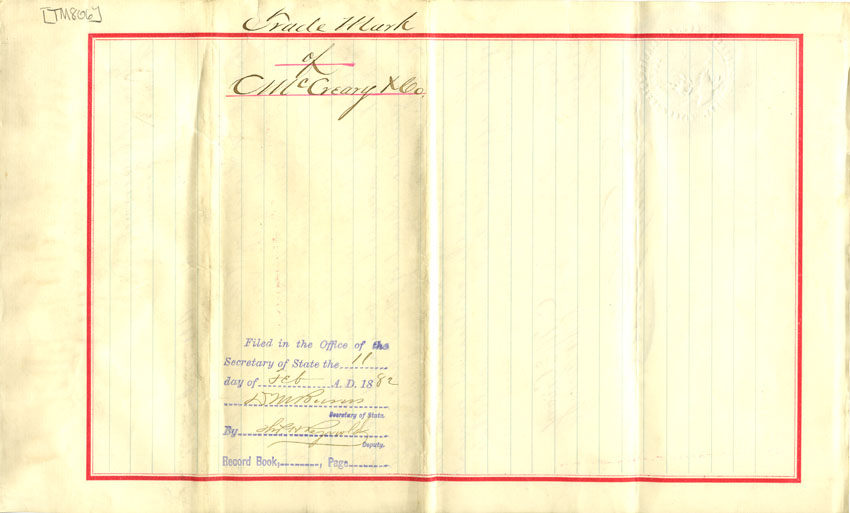 [TM806]
Trade Mark
of
C McCreary & Co.
Filed in the Office of the
Secretary of State the 11
day of Feb A. D. 1882
D M Burns
Secretary of State.
By
Deputy.
Record Book, , Page